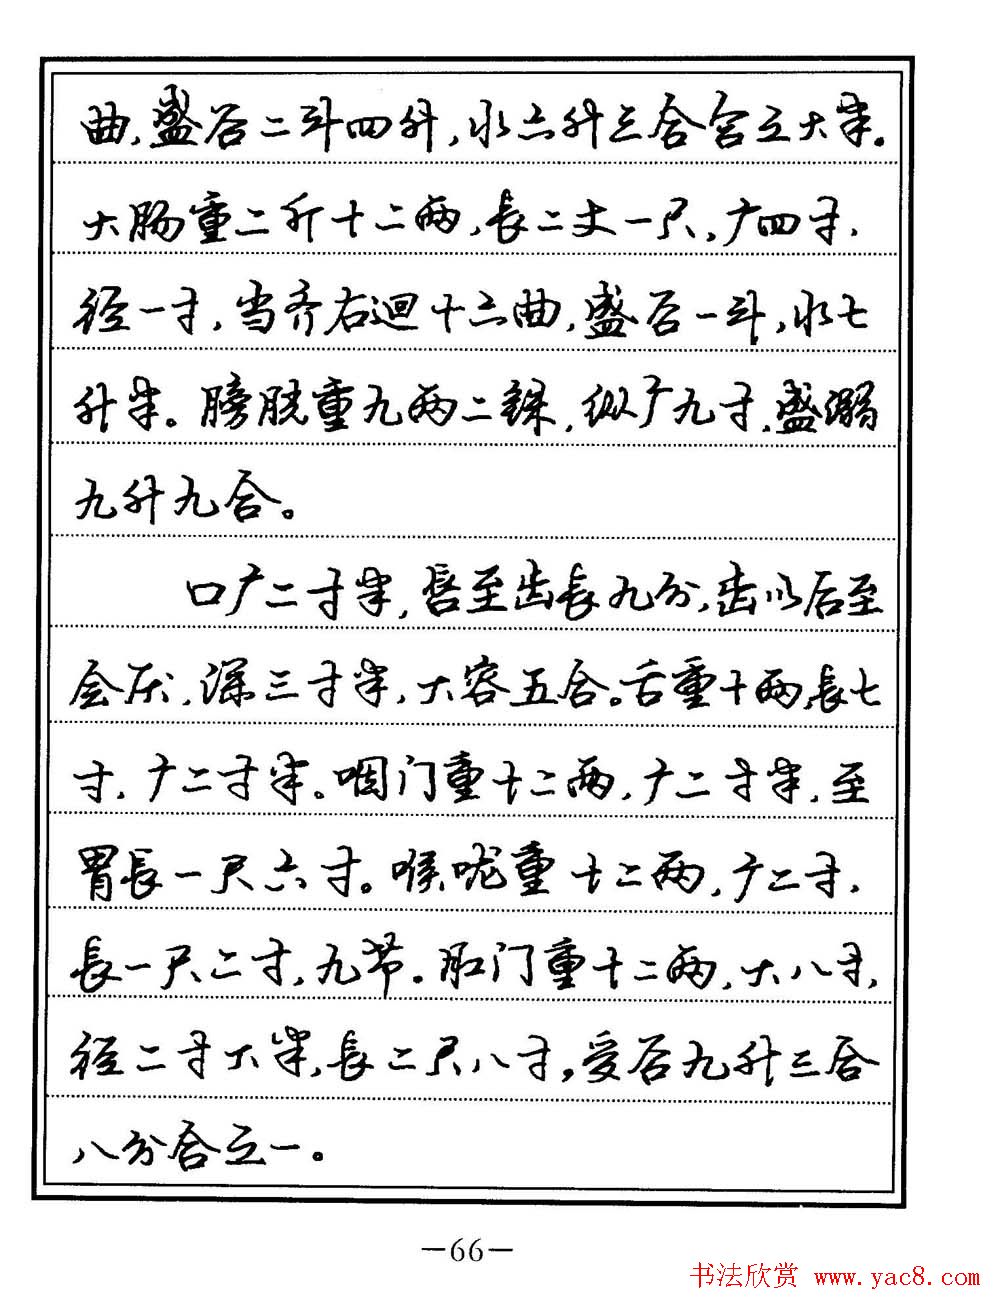 曲,盛谷二斗四升,水六升三合合之大半。
大肠重二斤十二两,長二丈一尺,广四寸,
径一寸,当齐右迴十六曲,盛谷一斗,水七
升半。膀胱重九两二铢,纵广九寸,盛溺
九升九合。
口广二寸半,唇至齿長九分,齿以后至
会厌,深三寸半,大容五合。舌重十两,長七
寸,广二寸半。咽门重十二两,广二寸半,至
胃長一尺六寸。喉咙重十二两,广二寸,
長一尺二寸,九节。肛门重十二两,大八寸,
径二寸大半,長二尺八寸,受谷九升三合
八分合之一。
—66—
书法欣赏 www.yac8.com